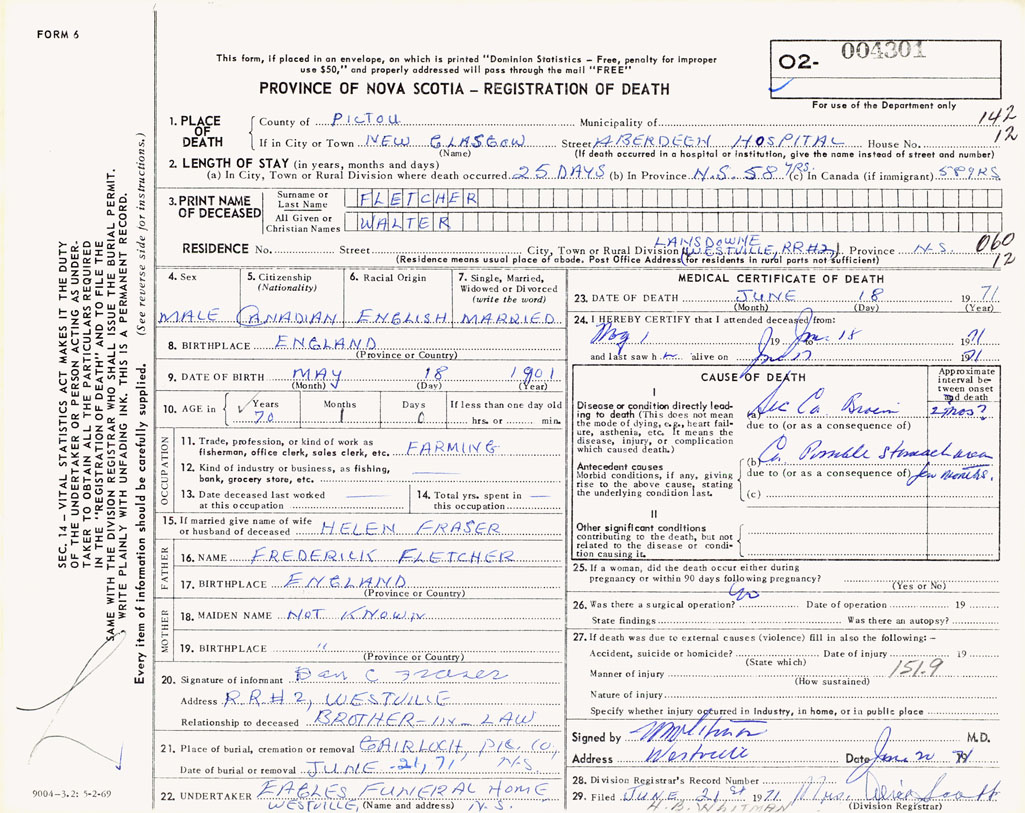 FORM 6
This form, if placed in an envelope, on which is printed "Dominion Statistics – Free, penalty for improper
use $50," and properly addressed will pass through the mail "FREE"
PROVINCE OF NOVA SCOTIA – REGISTRATION OF DEATH
O2- 004301
For use of the Department only
1. PLACE OF DEATH
County of PICTOU Municipality of 142
If in City or Town NEW GLASGOW Street ABERDEEN HOSPITAL House No. 12
(Name) (If death occurred in a hospital or institution, give the name instead of street and number)
2. LENGTH OF STAY (in years, months and days)
(a) In City, Town or Rural Division where death occurred 25 DAYS (b) In Province N.S. 58 YRS. (c) In Canada (if immigrant) 58 YRS
3. PRINT NAME OF DECEASED
Surname or Last Name FLETCHER
All Given or Christian Names WALTER
LANSDOWNE
RESIDENCE No. Street City, Town or Rural Division (WESTVILLE, RR#2) Province N.S. 060
(Residence means usual place of abode. Post Office Address for residents in rural parts not sufficient) 12
4. Sex MALE
5. Citizenship (Nationality) CANADIAN
6. Racial Origin ENGLISH
7. Single, Married, Widowed or Divorced (write the word) MARRIED
8. BIRTHPLACE ENGLAND
(Province or Country)
9. DATE OF BIRTH MAY 18 1901
(Month) (Day) (Year)
10. AGE in Years 70 Months 1 Days 0 If less than one day old hrs. or min.
OCCUPATION
11. Trade, profession, or kind of work as
fisherman, office clerk, sales clerk, etc. FARMING
12. Kind of industry or business, as fishing,
bank, grocery store, etc.
13. Date deceased last worked
at this occupation
14. Total yrs. spent in
this occupation
15. If married give name of wife
or husband of deceased HELEN FRASER
FATHER
16. NAME FREDERICK FLETCHER
17. BIRTHPLACE ENGLAND
(Province or Country)
MOTHER
18. MAIDEN NAME NOT KNOWN
19. BIRTHPLACE "
(Province or Country)
20. Signature of informant Dan C Fraser
Address R.R.#2, WESTVILLE
Relationship to deceased BROTHER-IN-LAW
21. Place of burial, cremation or removal GAIRLOCH, PIC. CO., N.S.
Date of burial or removal JUNE 21, 71
22. UNDERTAKER EAGLES FUNERAL HOME
WESTVILLE, (Name and address) N.S.
MEDICAL CERTIFICATE OF DEATH
23. DATE OF DEATH JUNE 18 1971
(Month) (Day) (Year)
24. I HEREBY CERTIFY that I attended deceased from:
May 1 19 to Jun. 18 1971
and last saw h alive on June 17 1971
CAUSE OF DEATH
Approximate interval between onset and death
I
Disease or condition directly leading to death (This does not mean the mode of dying, e.g., heart failure, asthenia, etc. It means the disease, injury, or complication which caused death.)
(a) Sec Ca. Brain 2 mos?
due to (or as a consequence of)
Antecedent causes
Morbid conditions, if any, giving rise to the above cause, stating the underlying condition last.
(b) Ca. Possible stomach area few months.
due to (or as a consequence of)
(c)
II
Other significant conditions
contributing to the death, but not related to the disease or condition causing it.
25. If a woman, did the death occur either during
pregnancy or within 90 days following pregnancy?
(Yes or No)
26. Was there a surgical operation? no Date of operation 19
State findings Was there an autopsy?
27. If death was due to external causes (violence) fill in also the following: –
Accident, suicide or homicide? Date of injury 19
(State which)
Manner of injury 151.9
(How sustained)
Nature of injury
Specify whether injury occurred in Industry, in home, or in public place
Signed by M.D.
Address Westville Date June 20 71
28. Division Registrar's Record Number
29. Filed JUNE 21st 1971 Mrs. Scott
H.B. WHITMAN (Division Registrar)
SEC. 14 – VITAL STATISTICS ACT MAKES IT THE DUTY
OF THE UNDERTAKER OR PERSON ACTING AS UNDER-
TAKER TO OBTAIN ALL THE PARTICULARS REQUIRED
IN THE "REGISTRATION OF DEATH" AND TO FILE THE
SAME WITH THE DIVISION REGISTRAR WHO SHALL ISSUE THE BURIAL PERMIT.
WRITE PLAINLY WITH UNFADING INK. THIS IS A PERMANENT RECORD.
Every item of information should be carefully supplied. (See reverse side for instructions.)
9004-3.2: 5-2-69